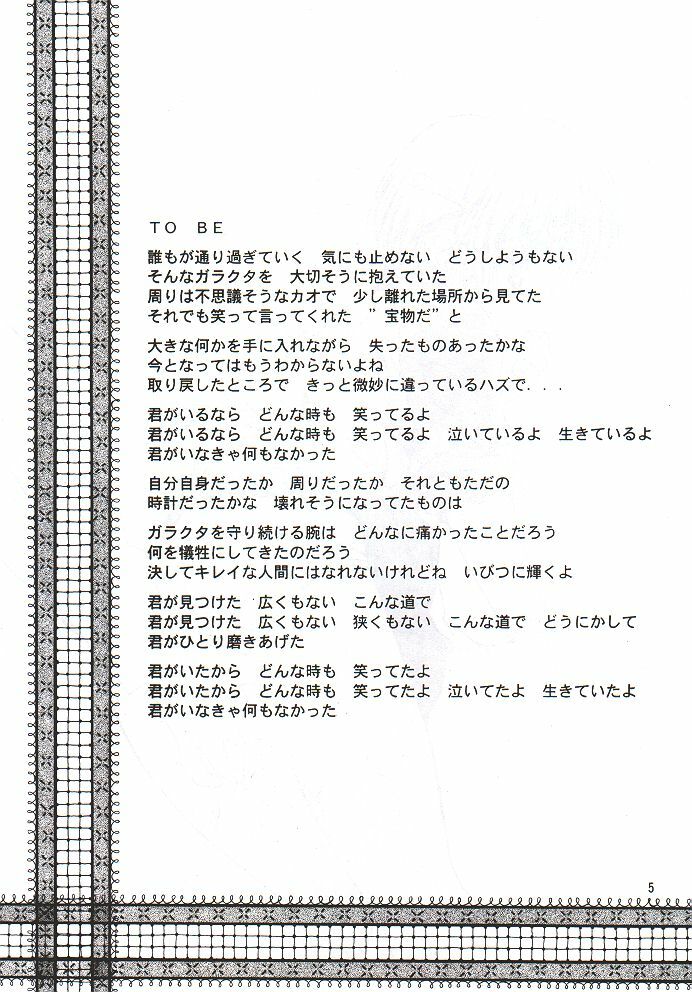 TO BE
誰もが通り過ぎていく　気にも止めない　どうしようもない
そんなガラクタを　大切そうに抱えていた
周りは不思議そうなカオで　少し離れた場所から見てた
それでも笑って言ってくれた　”宝物だ”と
大きな何かを手に入れながら　失ったものあったかな
今となってはもうわからないよね
取り戻したところで　きっと微妙に違っているハズで．．．
君がいるなら　どんな時も　笑ってるよ
君がいるなら　どんな時も　笑ってるよ　泣いているよ　生きているよ
君がいなきゃ何もなかった
自分自身だったか　周りだったか　それともただの
時計だったかな　壊れそうになってたものは
ガラクタを守り続ける腕は　どんなに痛かったことだろう
何を犠牲にしてきたのだろう
決してキレイな人間にはなれないけれどね　いびつに輝くよ
君が見つけた　広くもない　こんな道で
君が見つけた　広くもない　狭くもない　こんな道で　どうにかして
君がひとり磨きあげた
君がいたから　どんな時も　笑ってたよ
君がいたから　どんな時も　笑ってたよ　泣いてたよ　生きていたよ
君がいなきゃ何もなかった
5